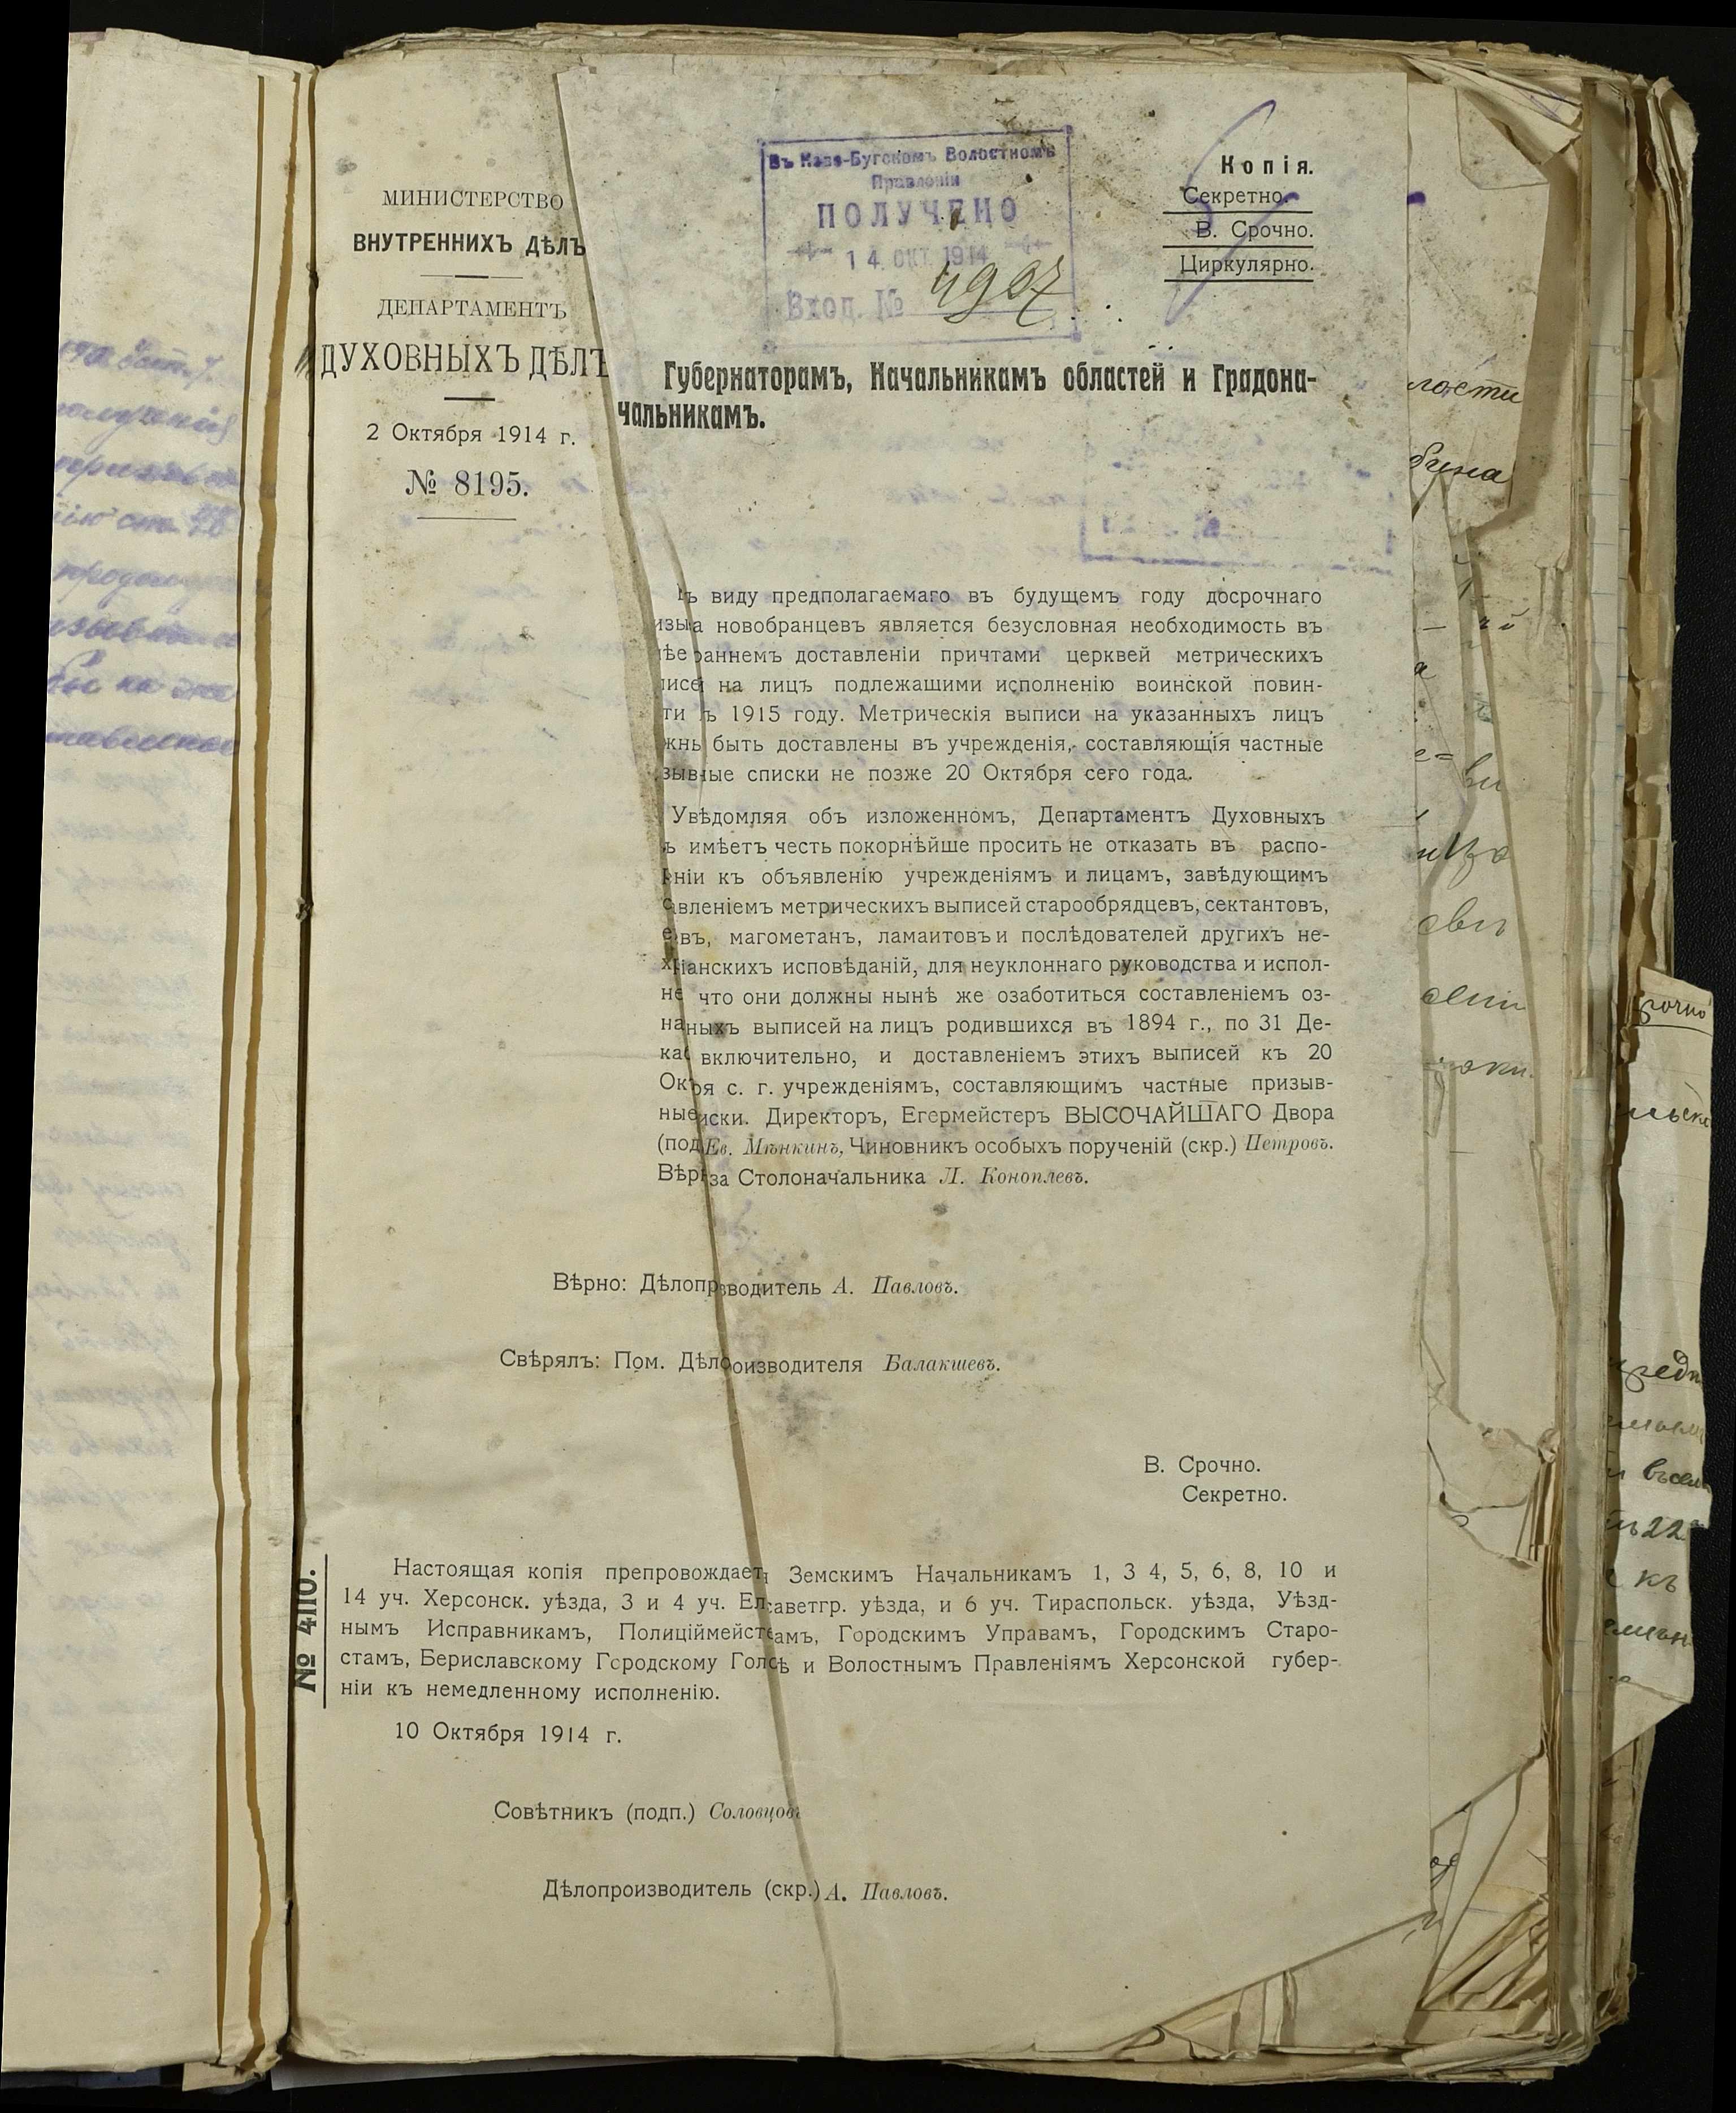 МИНИСТЕРСТВО
ВНУТРЕННИХЪ ДѢЛЪ
ДЕПАРТАМЕНТЪ
ДУХОВНЫХЪ ДѢЛЪ
2 Октября 1914 г.
№ 8195.
Волостномъ
Правленіи
ПОЛУЧЕНО
14 ОКТ. 1914
Вход. № 4907
Копія.
Секретно.
В. Срочно.
Циркулярно.
Губернаторамъ, Начальникамъ областей и Градона-
чальникамъ.
виду предполагаемаго въ будущемъ году досрочнаго
новобранцевъ является безусловная необходимость въ
доставленіи причтами церквей метрическихъ
на лицъ подлежашими исполненію воинской повин-
1915 году. Метрическія выписи на указанныхъ лицъ
быть доставлены въ учрежденія, составляющія частные
списки не позже 20 Октября сего года.
Увѣдомляя объ изложенномъ, Департаментъ Духовныхъ
имѣетъ честь покорнѣйше просить не отказать въ распо-
ніи къ объявленію учрежденіямъ и лицамъ, завѣдующимъ
авленіемъ метрическихъ выписей старообрядцевъ, сектантовъ,
въ, магометанъ, ламаитовъ и послѣдователей другихъ не-
іанскихъ исповѣданій, для неуклоннаго руководства и испол-
не что они должны нынѣ же озаботиться составленіемъ оз-
наныхъ выписей на лицъ родившихся въ 1894 г., по 31 Де-
ка включительно, и доставленіемъ этихъ выписей къ 20
Окъря с. г. учрежденіямъ, составляющимъ частные призыв-
ные иски. Директоръ, Егермейстеръ ВЫСОЧАЙШАГО Двора
(под Ев. Мѣнкинъ, Чиновникъ особыхъ порученій (скр.) Петровъ.
Вѣр за Столоначальника Л. Коноплевъ.
Вѣрно: Дѣлопрзводитель А. Павловъ.
Свѣрялъ: Пом. Дѣлооизводителя Балакшевъ.
В. Срочно.
Секретно.
№ 4110.
Настоящая копія препровождает Земскимъ Начальникамъ 1, 3 4, 5, 6, 8, 10 и
14 уч. Херсонск. уѣзда, 3 и 4 уч. Елсаветгр. уѣзда, и 6 уч. Тираспольск. уѣзда, Уѣзд-
нымъ Исправникамъ, Полиціймейстамъ, Городскимъ Управамъ, Городскимъ Старо-
стамъ, Бериславскому Городскому Голсѣ и Волостнымъ Правленіямъ Херсонской губер-
ніи къ немедленному исполненію.
10 Октября 1914 г.
Совѣтникъ (подп.) Соловцовъ
Дѣлопроизводитель (скр.) А. Павловъ.